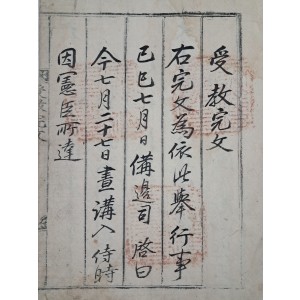 受教完文
右完文為依此舉行事
己巳七月日備邊司 啓曰
今七月二十七日晝講入 侍時
因憲臣所達